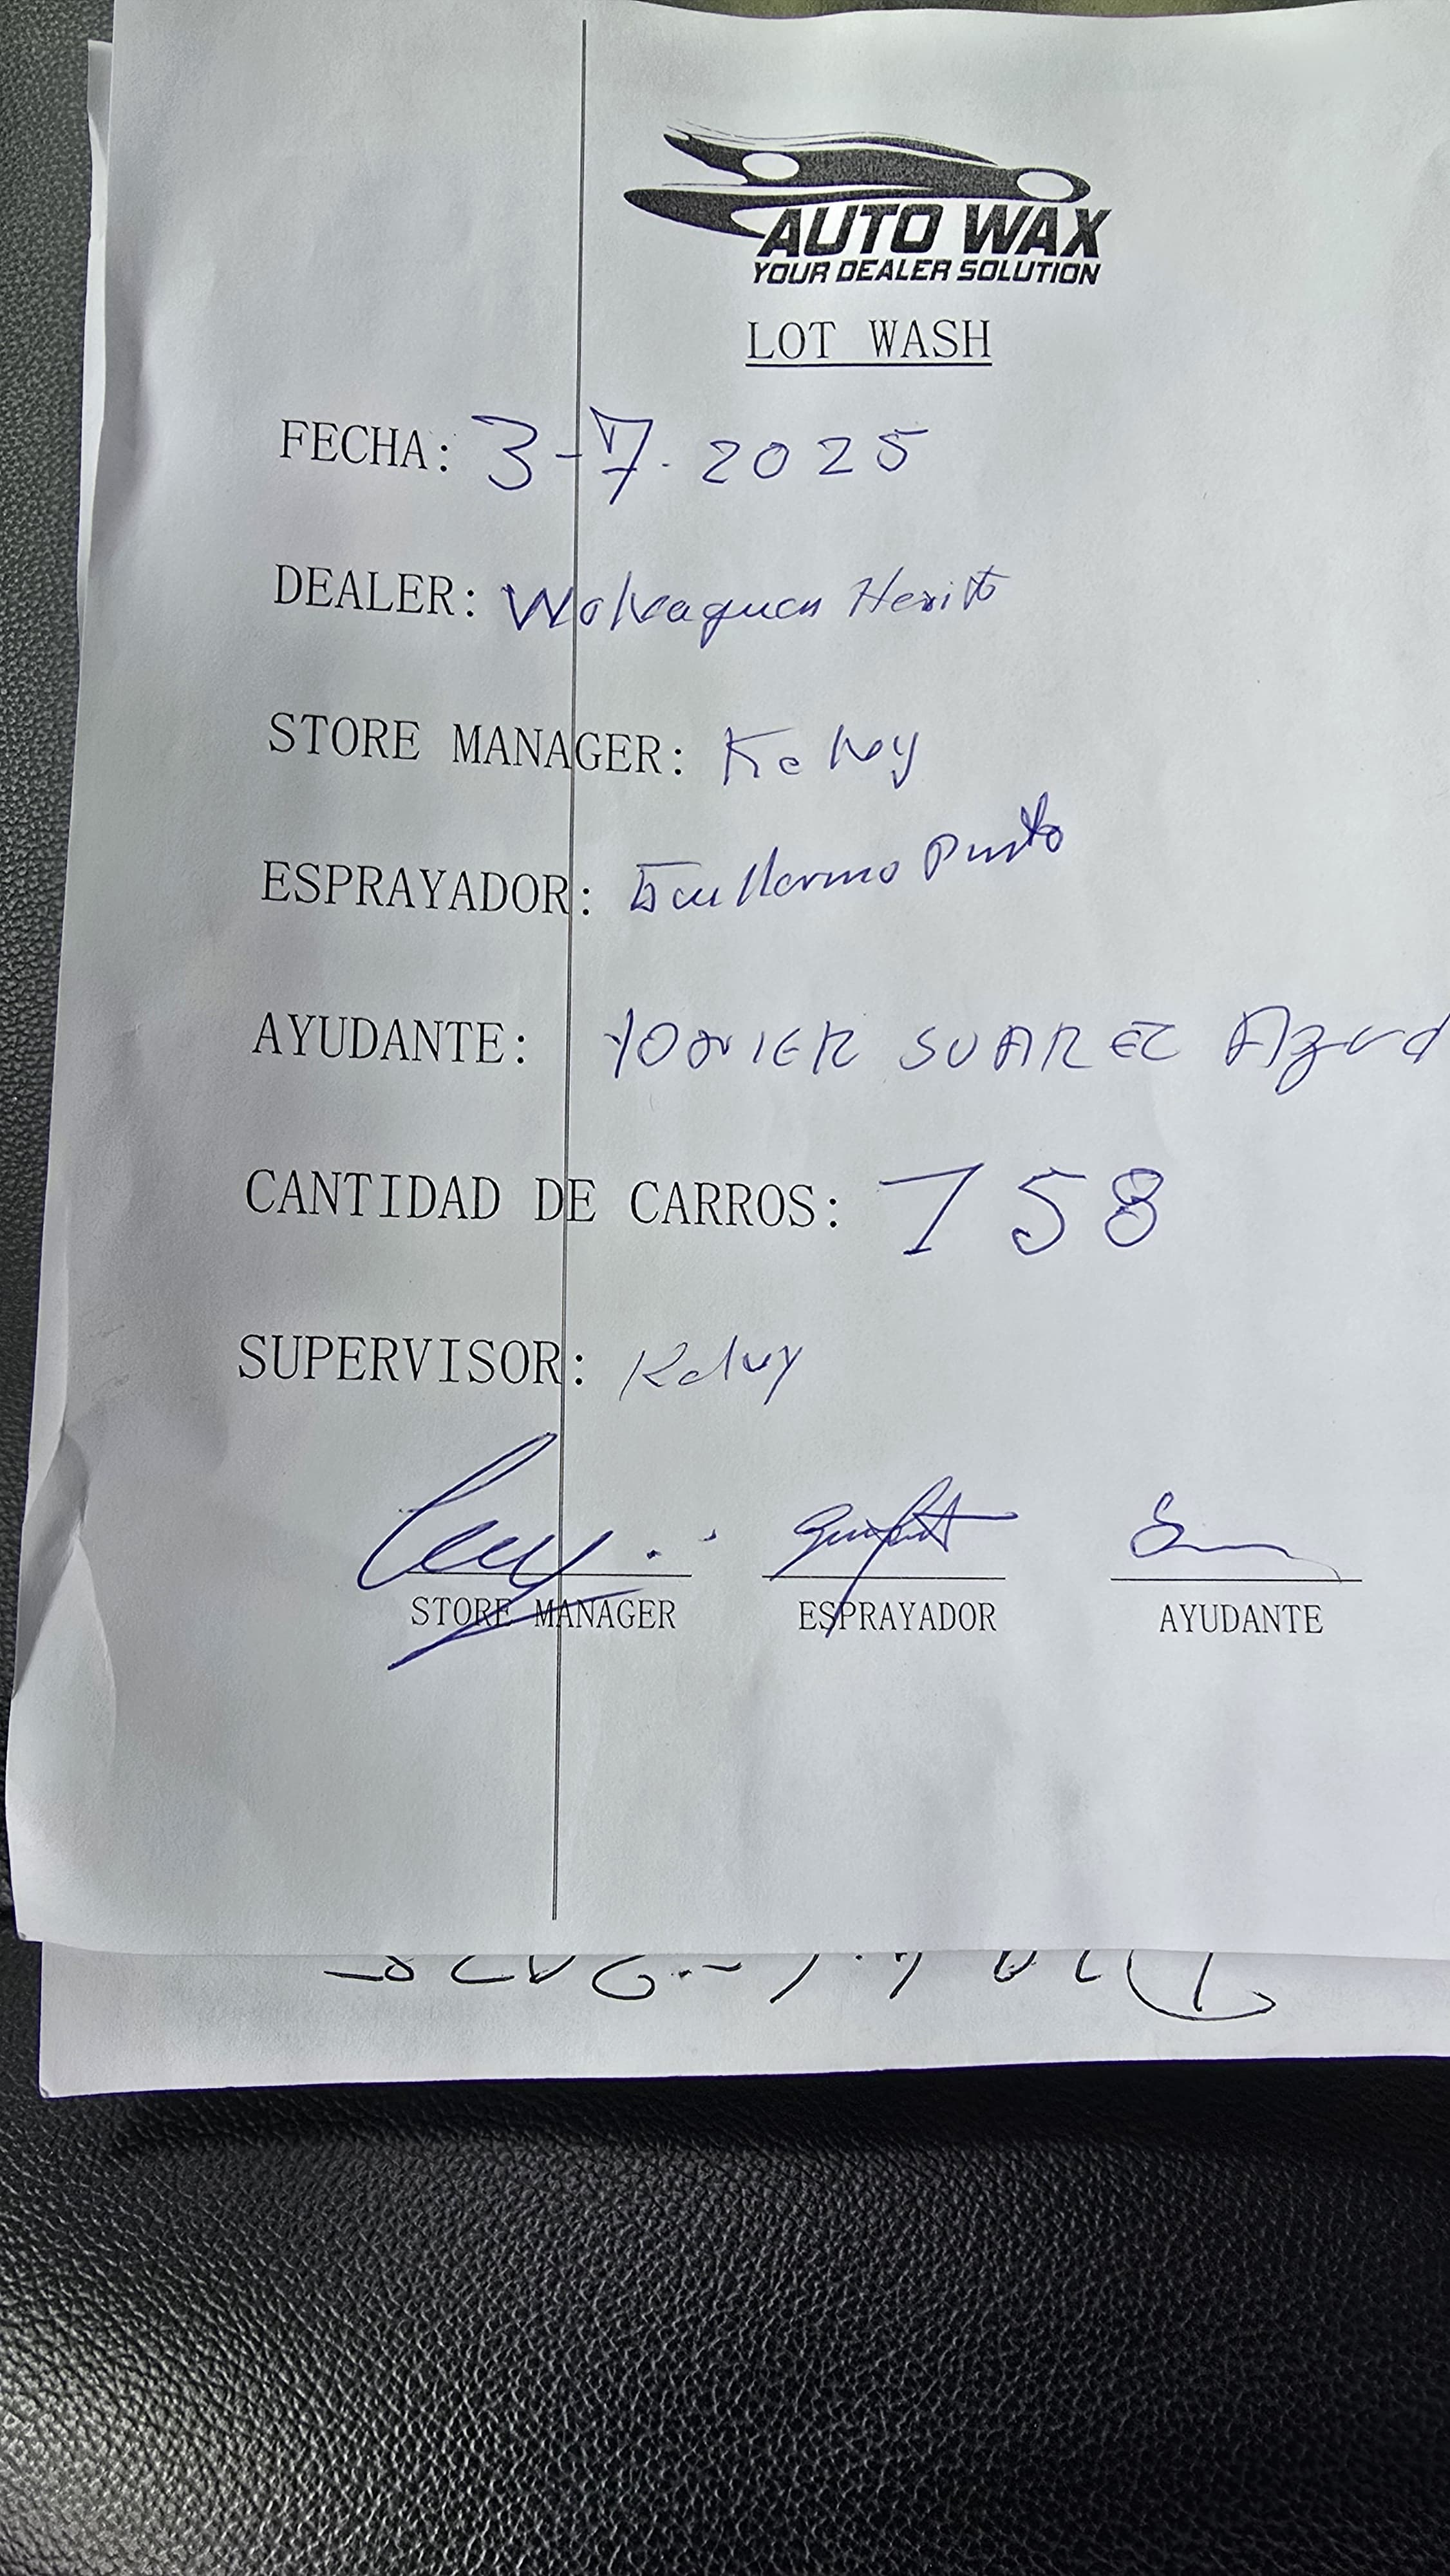 AUTO WAX
YOUR DEALER SOLUTION
LOT WASH
FECHA: 3-7-2025
DEALER: Wolvaguen
STORE MANAGER: Kelvy
ESPRAYADOR: Guillermo
AYUDANTE: SUAREZ
CANTIDAD DE CARROS: 758
SUPERVISOR: Kelvy
STORE MANAGER ESPRAYADOR AYUDANTE